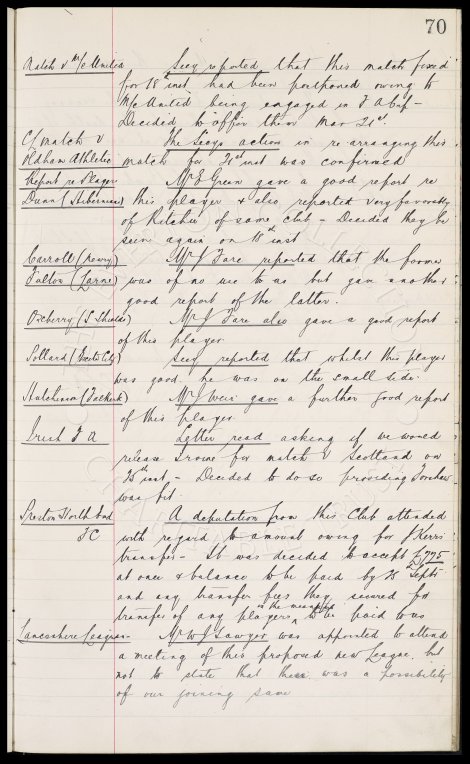 70
Match v M/c United Secy reported that this match fixed
for 18th inst had been postponed owing to
M/c United being engaged in F A Cup -
Decided to offer them Mar 21st.
C/match v The Secys action in re-arranging this
Oldham Athletic match for 31st inst was confirmed
Report re Player Mr E Green gave a good report re
Dunn (Hibernian) this player & also reported very favorably
of Ritchie of same club - Decided they be
seen again on 18th inst
Carroll (Newry) Mr J Fare reported that the former
Fulton (Larne) was of no use to us but gave another
good report of the latter.
Oxberry (S Shields) Mr J Fare also gave a good report
of this player
Pollard (Exeter City) Secy reported that whilst this player
was good he was on the small side.
Hutchinson Mr J Weir gave a further good report
of this player.
Irish F A Letter read asking if we would
release Irvine for match v Scotland on
25th inst - Decided to do so providing
was fit.
Preston North End A deputation from this Club attended
F C with regard to amount owing for J Kerrs
transfer - It was decided to accept £725
at once & balance to be paid by 25 Septr
and any transfer fees they secured for
transfer of any players in the meantime to be paid to us
Lancashire League Mr W J Sawyer was appointed to attend
a meeting of this proposed new League, but
not to state that there was a possibility
of our joining same